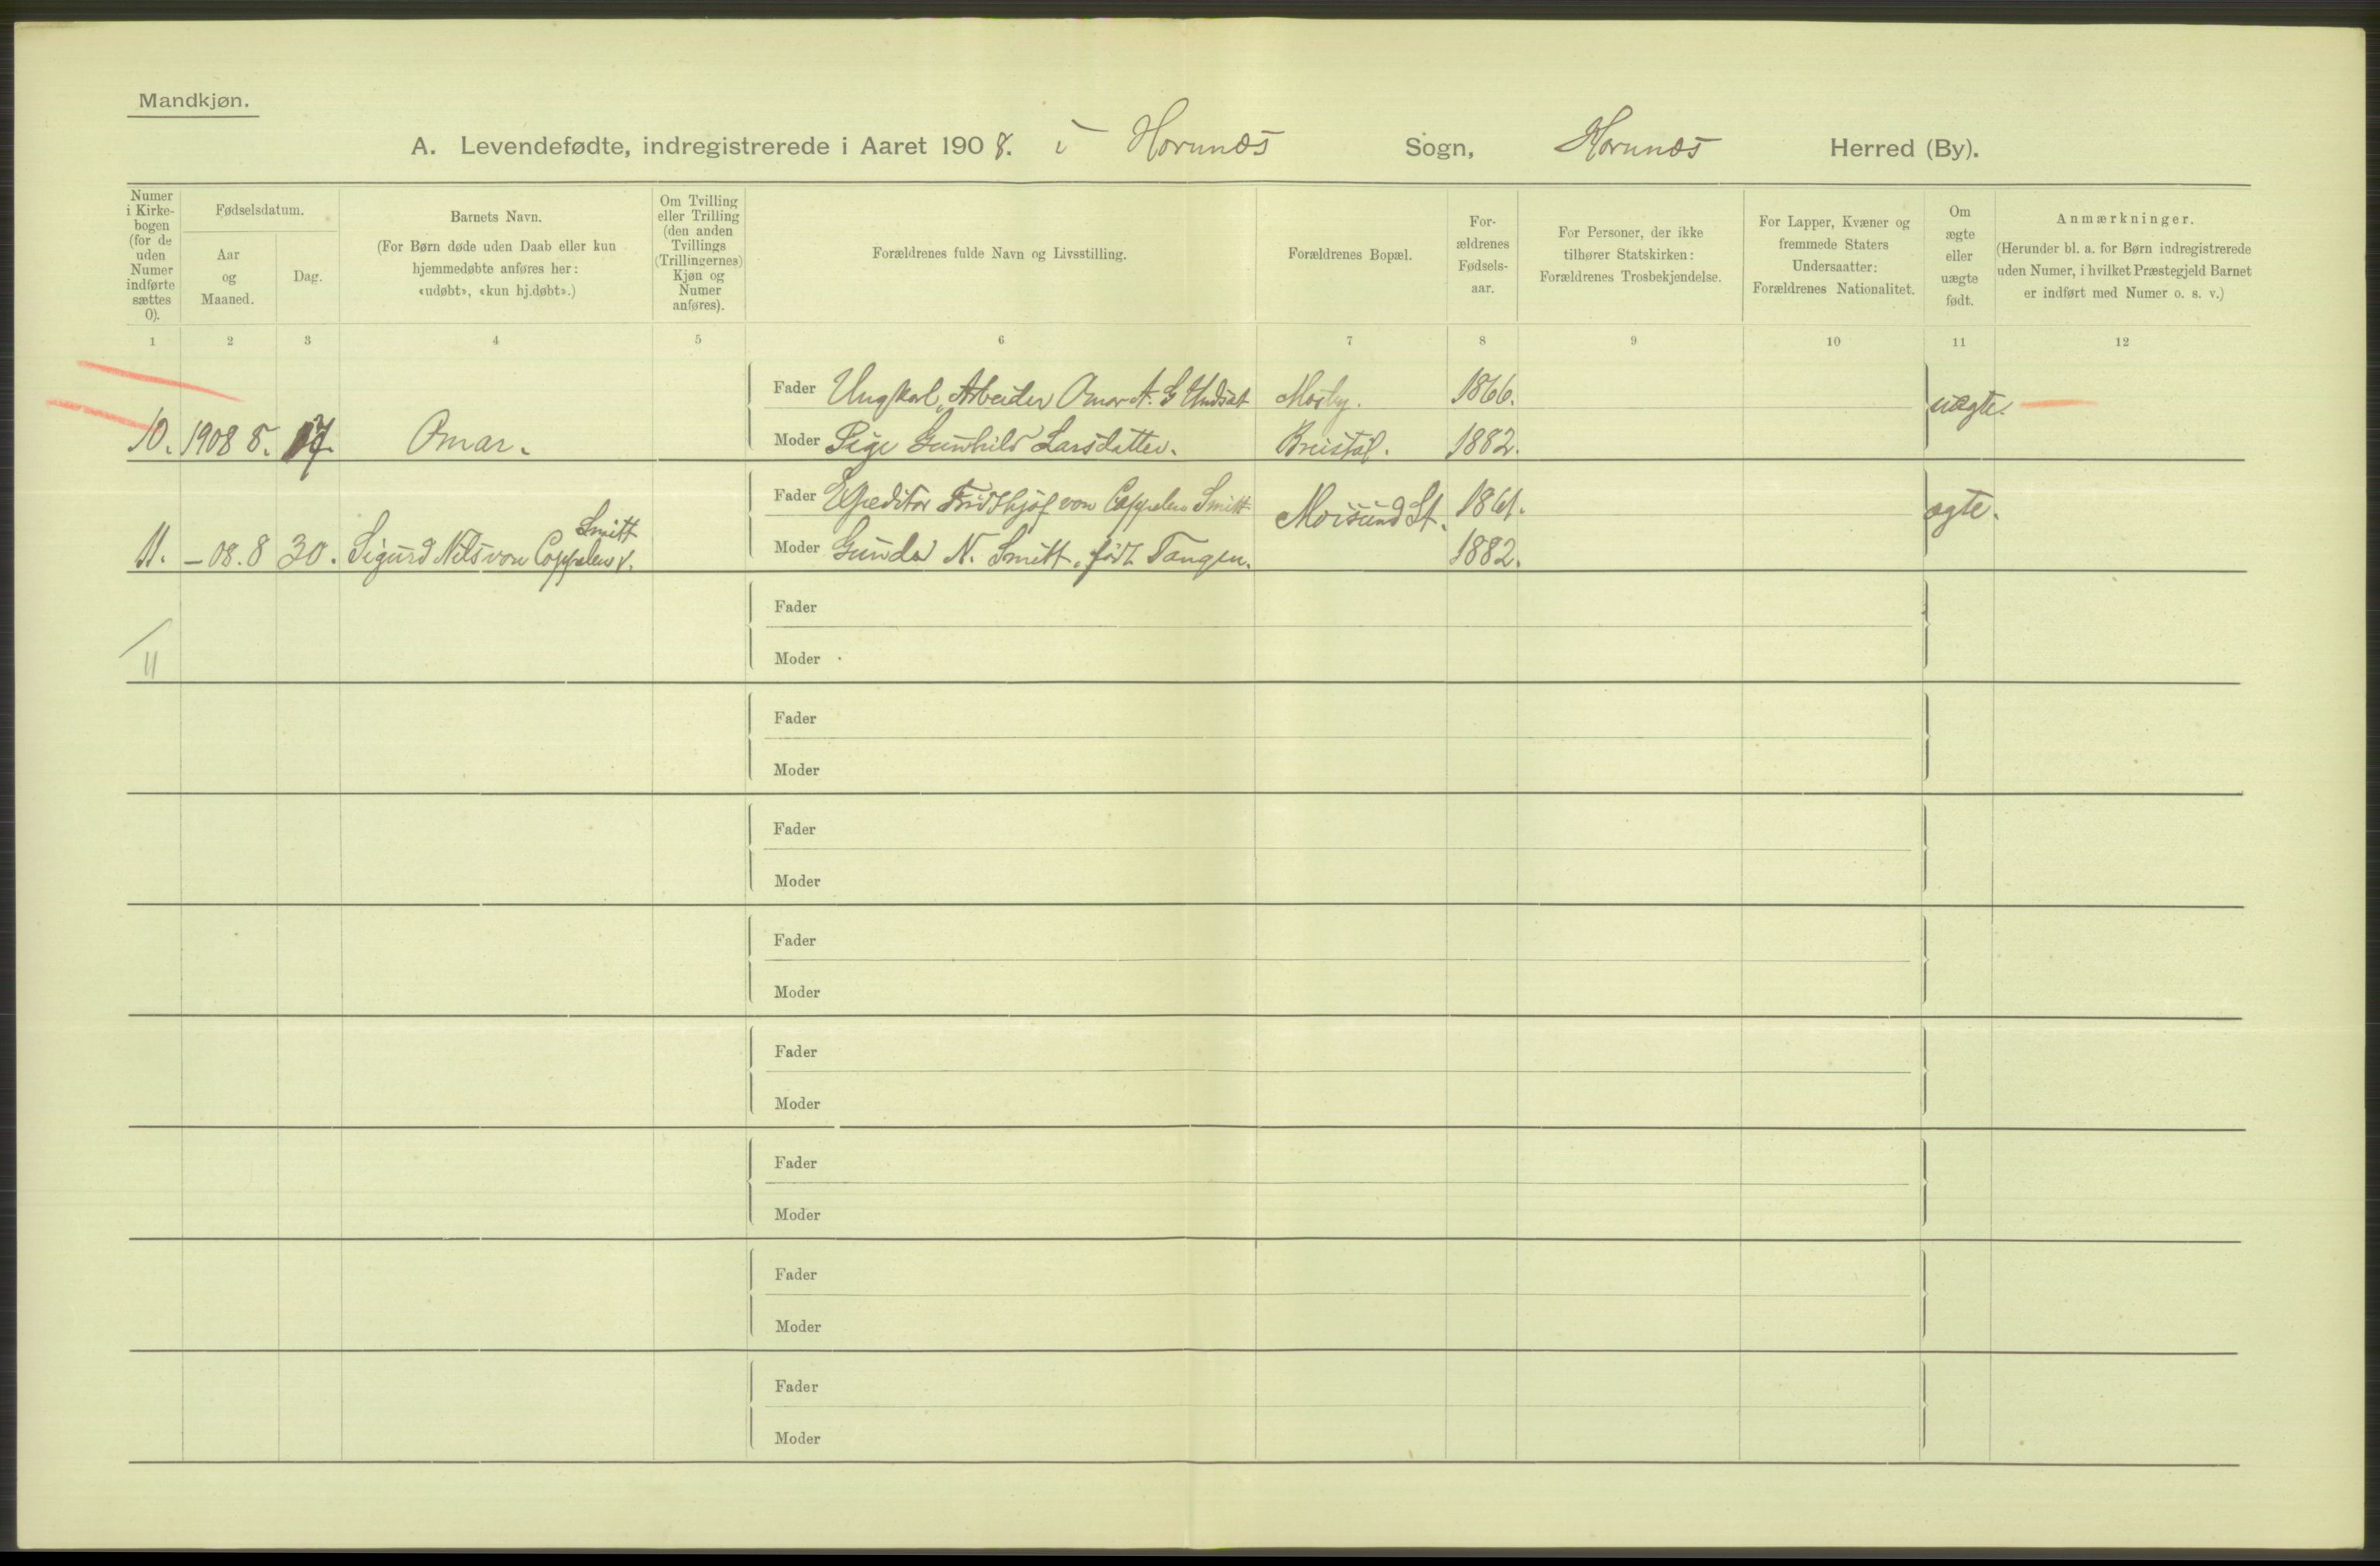 Mandkjøn.
A. Levendefødte, indregistrerede i Aaret 1908. i Hornnæs Sogn, Hornnæs Herred (By).
Numer i Kirkebogen (for de uden Numer indførte sættes 0).
Fødselsdatum.
Aar og Maaned.
Dag.
Barnets Navn.
(For Børn døde uden Daab eller kun
hjemmedøbte anføres her:
«udøbt», «kun hj.døbt».)
Om Tvilling
eller Trilling
(den anden
Tvillings
(Trillingernes)
Kjøn og
Numer
anføres).
Forældrenes fulde Navn og Livsstilling.
Forældrenes Bopæl.
For-
ældrenes
Fødsels-
aar.
For Personer, der ikke
tilhører Statskirken:
Forældrenes Trosbekjendelse.
For Lapper, Kvæner og
fremmede Staters
Undersaatter:
Forældrenes Nationalitet.
Om
ægte
eller
uægte
født.
Anmærkninger.
(Herunder bl. a. for Børn indregistrerede
uden Numer, i hvilket Præstegjeld Barnet
er indført med Numer o. s. v.)
1 2 3 4 5 6 7 8 9 10 11 12
Fader Ungkarl, Arbeider Omar A. G Mosby. 1866. uægte.
10. 1908 8. 17. Omar. Moder Pige Gunhild Larsdatter. Breistøl. 1882.
Fader Expeditør Fridthjof von Cappelen Smitt Moisund St. 1861. ægte.
Smitt
11. – 08. 8 30. Sigurd Nils von Cappelen Moder Gunda N. Smitt, født Tangen. 1882.
Fader
11
Moder
Fader
Moder
Fader
Moder
Fader
Moder
Fader
Moder
Fader
Moder
Fader
Moder
Fader
Moder